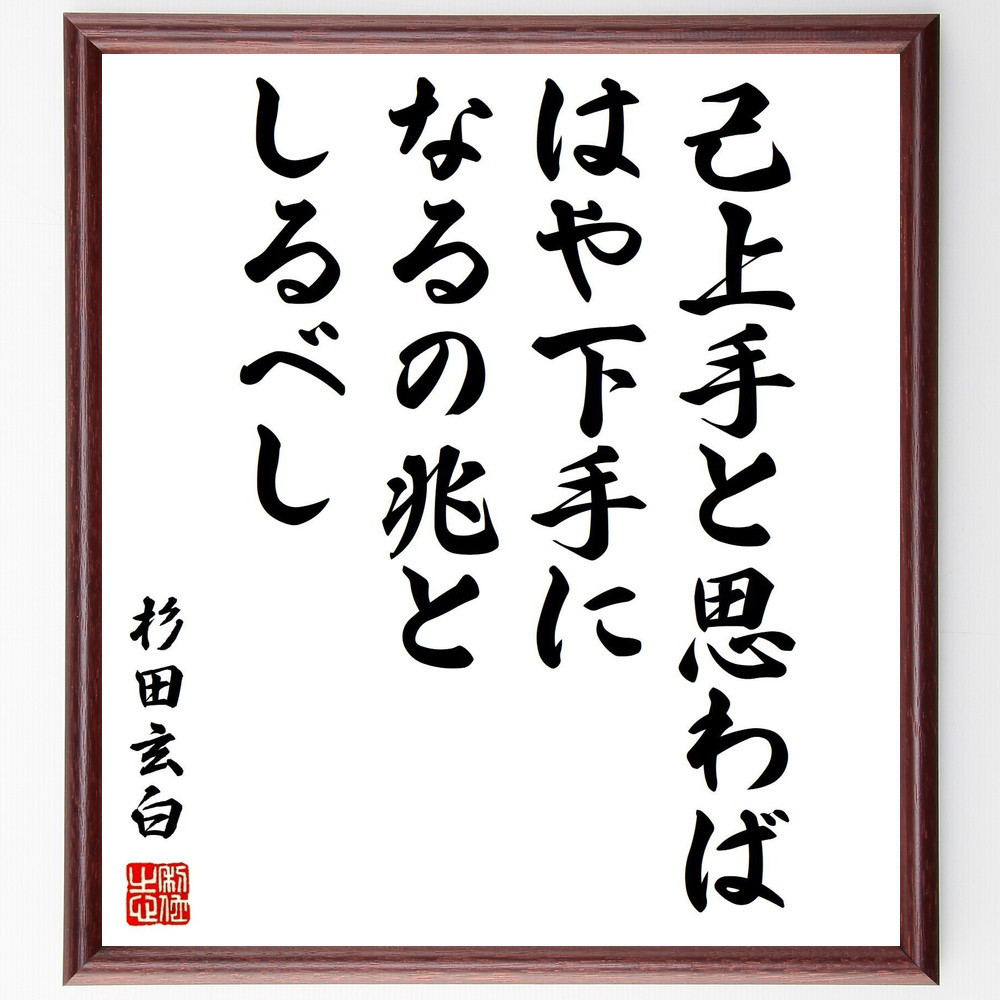 己上手と思わば
はや下手に
なるの兆と
しるべし
杉田玄白